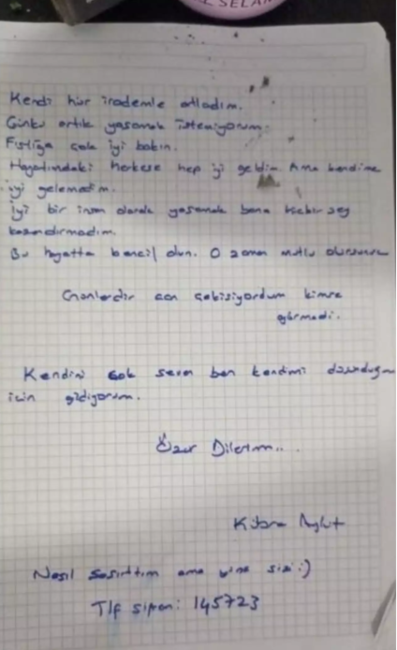 SELAM
Kendi hür irademle atladım.
Çünkü artık yaşamak istemiyorum.
Fıstığa çok iyi bakın.
Hayatımdaki herkese hep iyi geldim Ama kendime
iyi gelemedim.
iyi bir insan olarak yaşamak bana hiçbir şey
kazandırmadım.
Bu hayatta bencil olun. O zaman mutlu olursunuz
acı çekiyordum kimse
görmedi.
Kendini çok seven ben kendimi
için gidiyorum.
Özür Dilerim..
Kübra Aykut
Nasıl şaşırttım ama yine sizi :)
Tlf şifrem: 145723